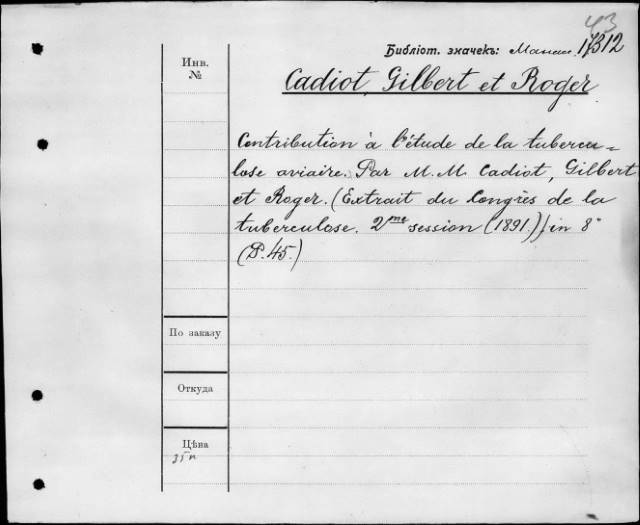 43
Библіот. значекъ: Манас. 17312
Инв.
№
Cadiot, Gilbert et Roger
Contribution à l'étude de la tubercu=
lose aviaire. Par M. M. Cadiot, Gilbert
et Roger. (Extrait du Congrès de la
tuberculose. 2me session (1891.)) in 8°
(P. 45.)
По заказу
Откуда
Цѣна
35 к